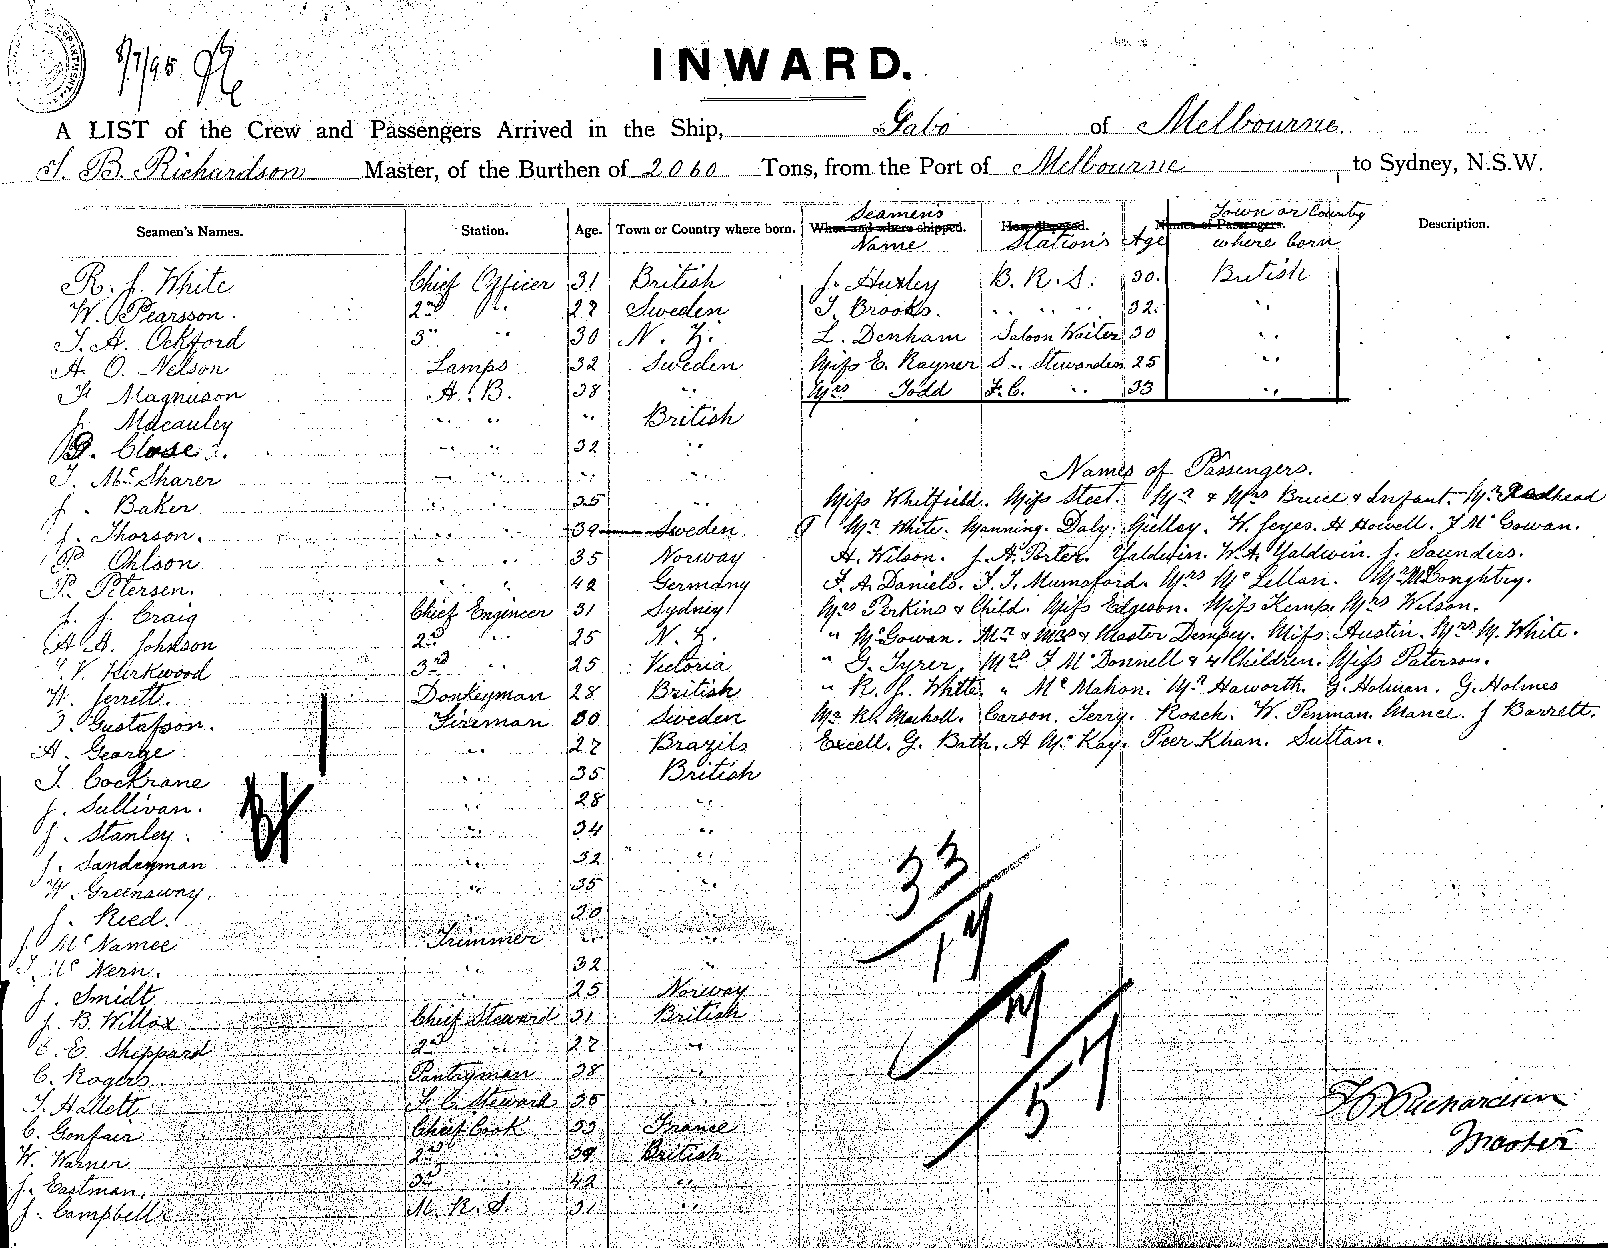 8/7/95
INWARD.
A LIST of the Crew and Passengers Arrived in the Ship, Gabo of Melbourne
T. B. Richardson Master, of the Burthen of 2060 Tons, from the Port of Melbourne to Sydney, N.S.W.
Seamen's Names. Station. Age. Town or Country where born. When and where shipped. Seamens Name How disposed. Stations Age Names of Passengers. Town or Country where born Description.
R. J. White Chief Officer 31 British J. Huxley B. R. S. 30. British
W. Pearsson. 2nd " 27 Sweden T. Brooks. " " " 32. "
T. A. Ockford 3rd " 30 N. Z. L. Denham Saloon Waiter 30 "
A. O. Nelson Lamps 32 Sweden Miss E. Rayner S. " Stewardess 25 "
Magnuson A. B. 38 " Mrs Todd F. C. " 33 "
J. Macauley " " " British
Close " " 32 "
T. McSharer " " " "
J. Baker " " 35 "
J. Thorson. " " 39 Sweden
P. Ohlson " " 35 Norway
P. Petersen. " " 42 Germany
J. J. Craig Chief Engineer 31 Sydney
A. A. Johnson 2nd " 25 N. Z.
V. Kirkwood 3rd " 25 Victoria
W. Jerrett. Donkeyman 28 British
Gustafson. Fireman 30 Sweden
A. George " 27 Brazils
T. Cockrane " 35 British
J. Sullivan. " 28 "
J. Stanley. " 34 "
J. Sandeyman " 32 "
W. Greenaway. " 35 "
J. Reed. " 30 "
J. McNamee Trimmer " "
T. McNern. " 32 "
J. Smidt " 25 Norway
J. B. Willox Chief Steward 31 British
C. E. Sheppard 2nd " 27 "
C. Rogers Pantryman 38 "
T. Hallett F. C. Steward 35 "
C. Gonfair Chief Cook 33 France
W. Warner 2nd " 39 British
J. Eastman. 3rd " 42 "
J. Campbell M. R. S. 31 "
Names of Passengers.
Miss Whitfield. Miss Steet. Mr & Mrs Bruce & Infant. Mr Redhead
Mr White. Manning. Daly. Gielley. W. Jeyes. H Howell. F McGowan.
H. Wilson. J. A. Porter. Yaldwin. W. A. Yaldwin. J. Saunders.
F. A. Daniels. F. T. Mumaford. Mrs McLellan. Mr McDoughtry.
Mrs Perkins & Child. Miss Edgeson. Miss Kemp. Mrs Wilson.
" McGowan. Mr & Mrs & Master Dempsey. Miss Austin. Mrs M. White.
" G. Tyrer. Mrs F McDonnell & 4 Children. Miss Paterson.
" R. J. White. " McMahon. Mr Haworth. G. Holman. G. Holmes
Mr R. Marholl. Carson. Terry. Roach. W. Penman. Mance. J Barrett.
Excell. G. Bath. A McKay. Peer Khan. Sultan.
33
17
57
T B Richardson
Master